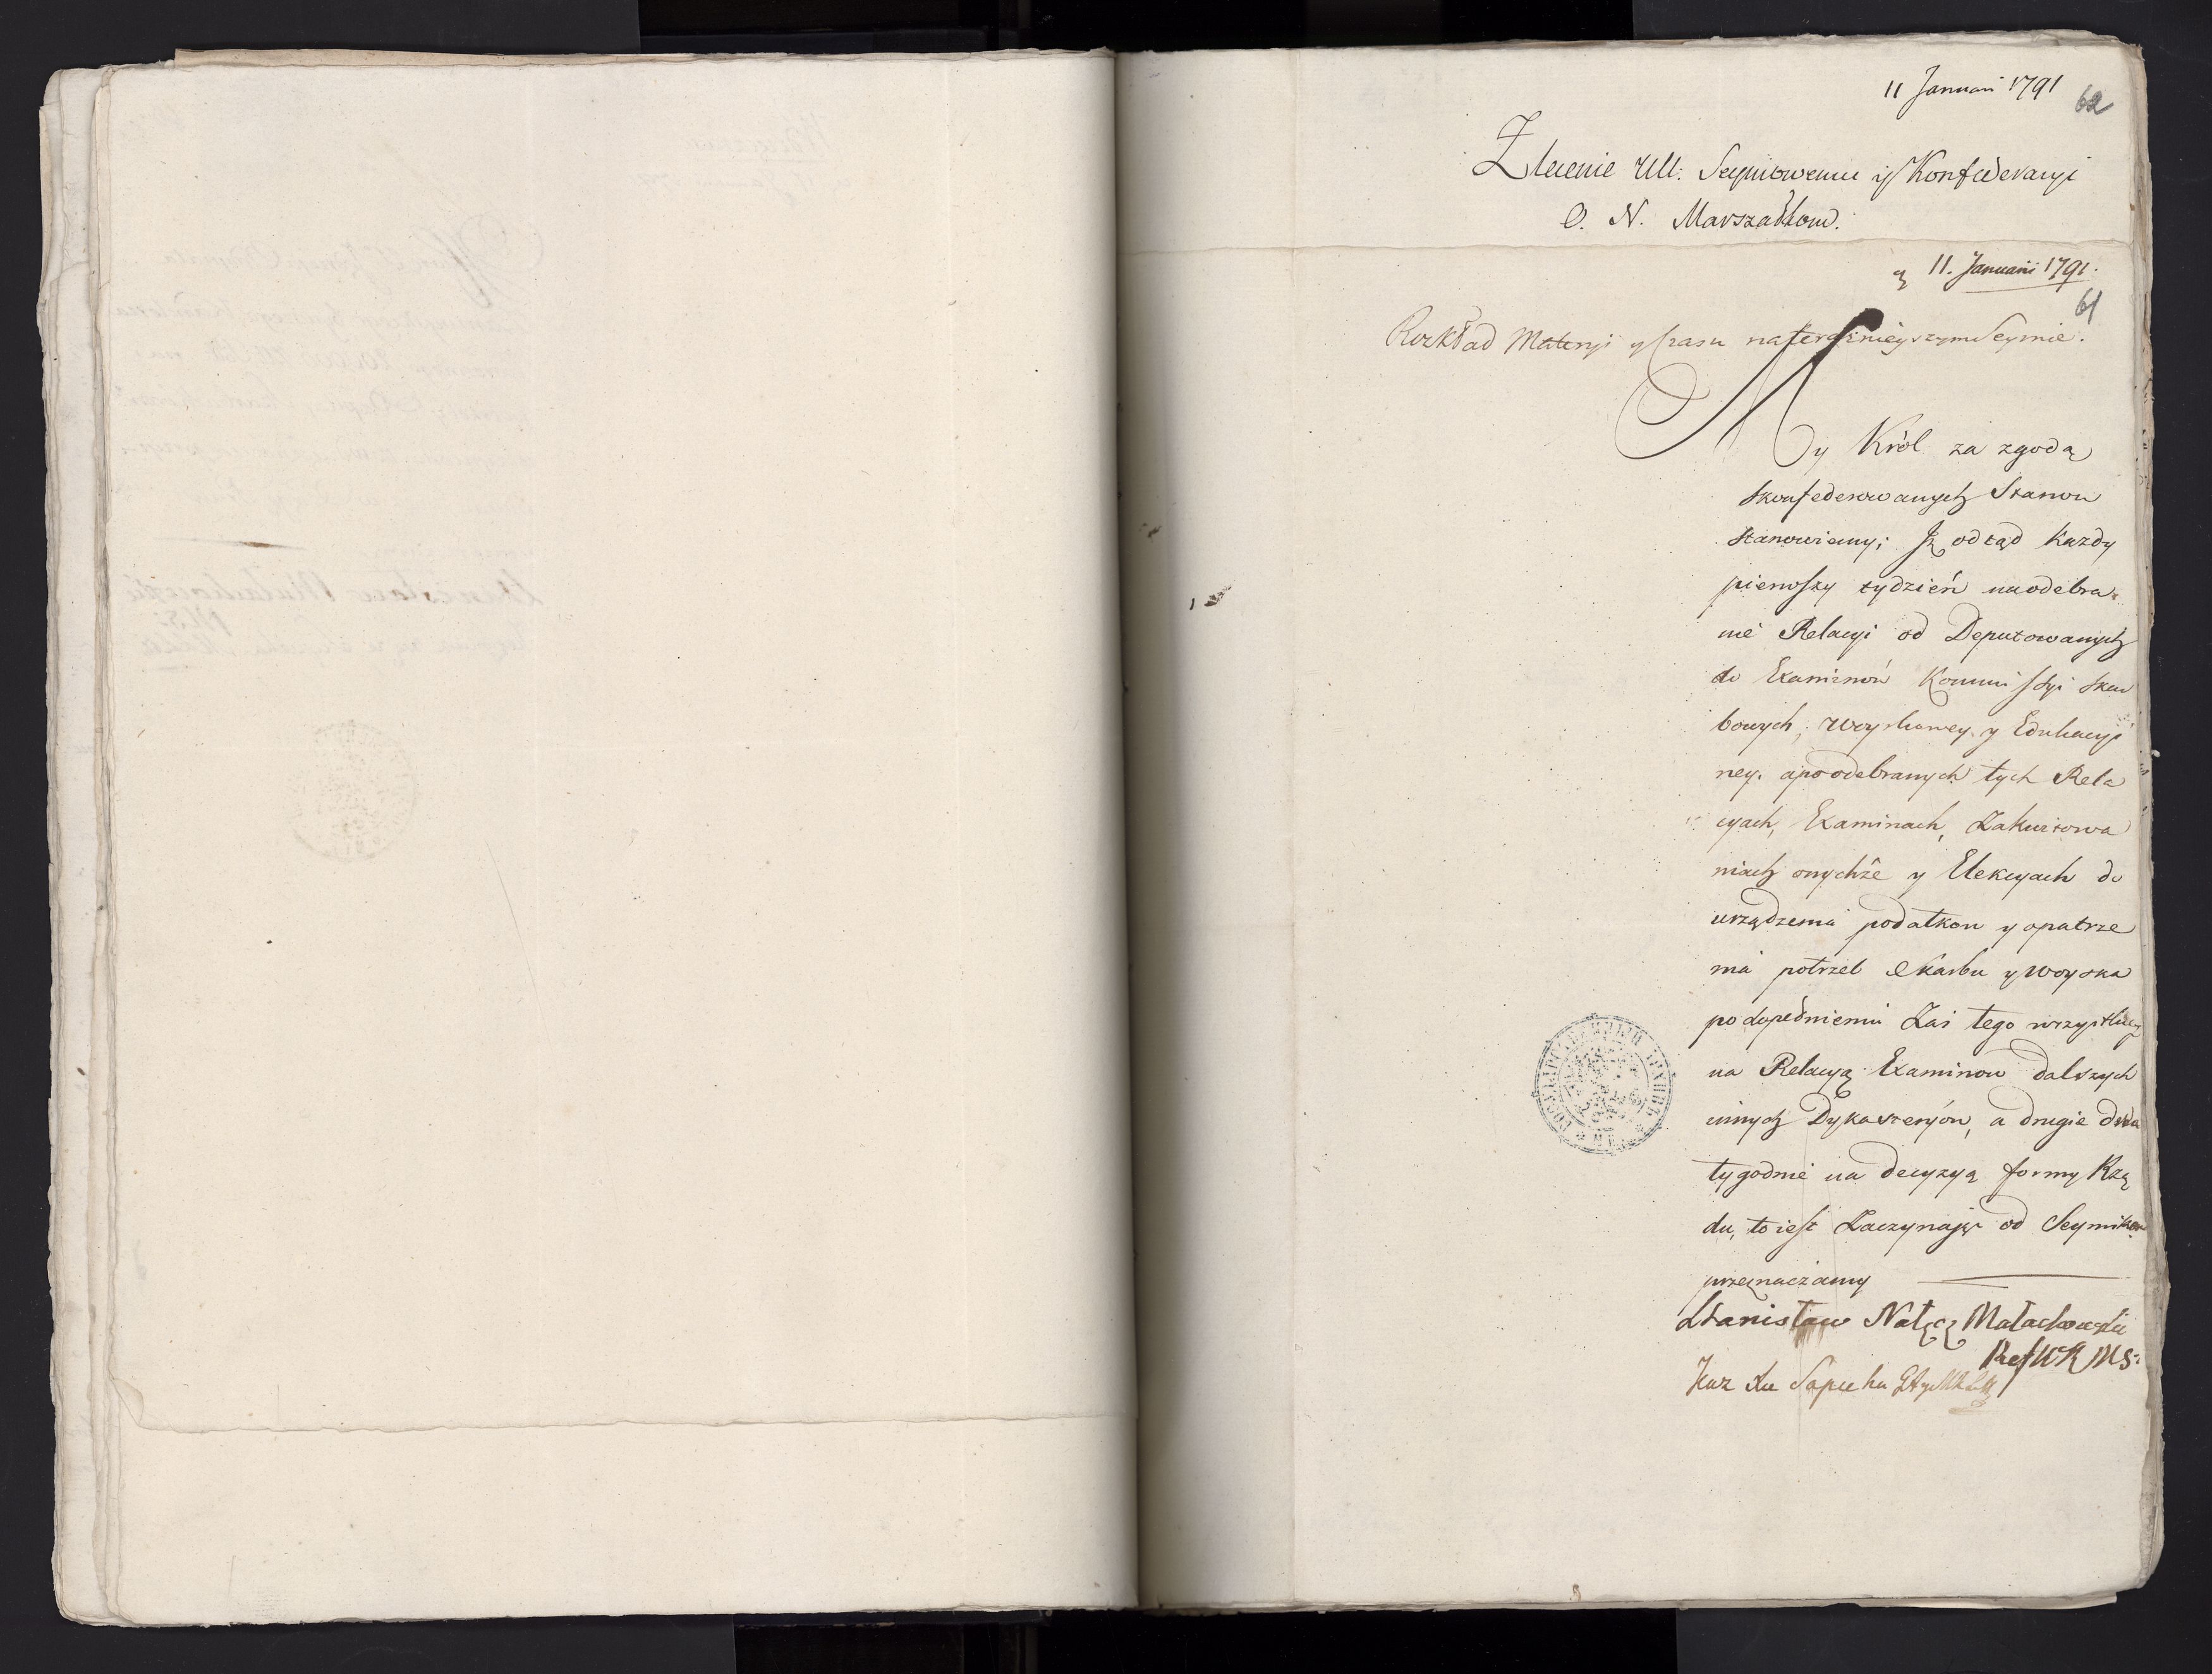 11 Januari 1791
62
Zlecenie Ur: Seymowemu y Konfederacyi
O. N. Marszałkom.
11. Januarii 1791.
61
Rozkład Materyi y Czasu na teraznieyszym Seymie.
My Król za zgodą
skonfederowanych Stanow
stanowiemy; Jż odtąd każdy
pierwszy tydzień na odebra-
nie Relacyi od Deputowanych
do Examinów Kommissyi skar
bowych, woyskowey y Edukacyi
ney. a po odebranych tych Rela
cyach, Examinach, Zakwitowa
niach onychże y Elekcyach do
urządzenia podatkow y opatrze
nia potrzeb Skarbu y woyska
po dopełnieniu Zaś tego wszystkiego
na Relacyą Examinow dalszych
innych Dykasteryów, a drugie dwa
tygodnie na decyzyą formy Rzą
du, to iest Zaczynając od Seymikow
przeznaczamy
Stanisław Nałęcz Małachowski
Ref W K MS:
Kaz Xże Sapieha